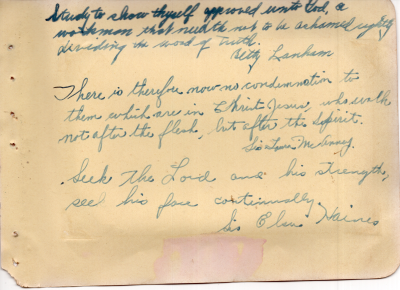 Study to show thyself approved unto God, a
workman that needth not to be ashamed rightly
dividing the word of Truth.
Betty Lanham
There is therefore now no condemnation to
them which are in Christ Jesus, who walk
not after the flesh, but after the Spirit.
Sister
Seek The Lord and his strength,
seek his face continually.
Sis Haines